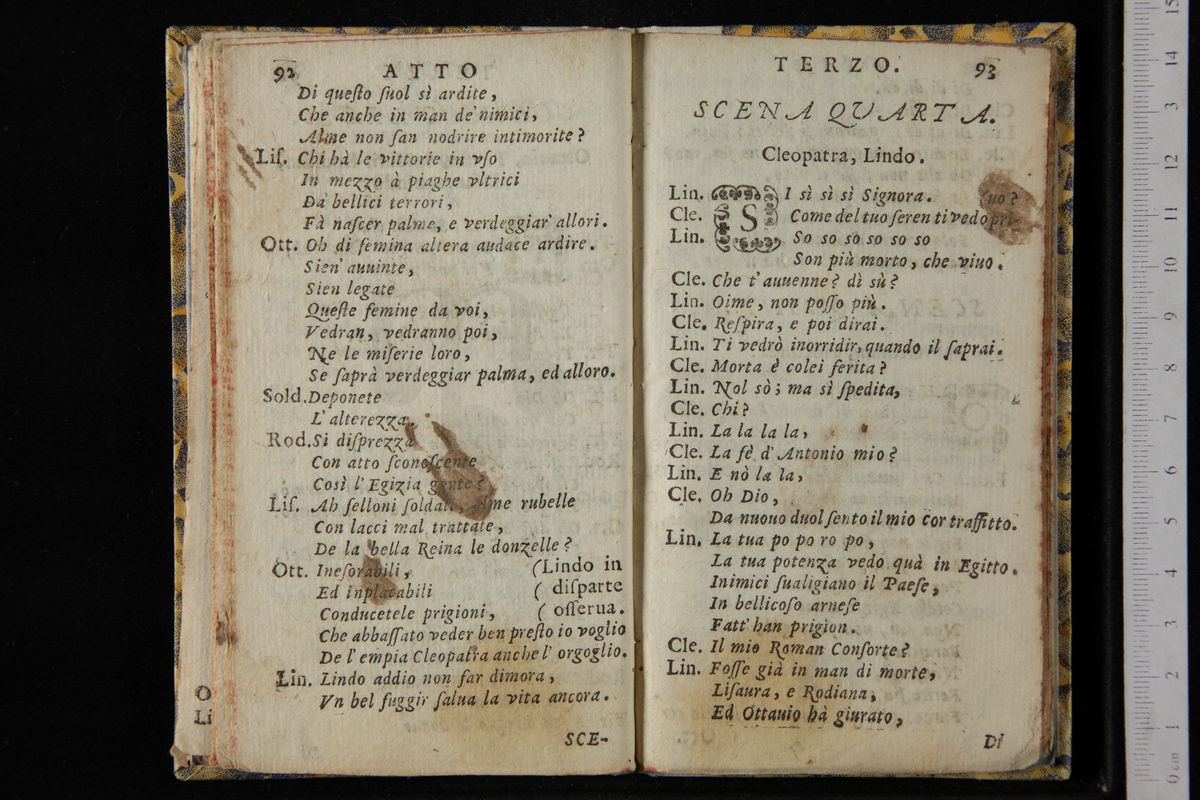 92 ATTO
Di questo suol sì ardite,
Che anche in man de' nimici,
Alme non san nodrire intimorite?
Lis. Chi hà le vittorie in vso
In mezzo à piaghe vltrici
Da bellici terrori,
Fà nascer palme, e verdeggiar allori.
Ott. Oh di femina altera audace ardire.
Sien' auuinte,
Sien legate
Queste femine da voi,
Vedran, vedranno poi,
Ne le miserie loro,
Se saprà verdeggiar palma, ed alloro.
Sold. Deponete
L'alterezza.
Rod. Si disprezza
Con atto sconoscente
Così l'Egizia gente?
Lis. Ah felloni soldati, alme rubelle
Con lacci mal trattate,
De la bella Reina le donzelle?
Ott. Inesorabili, (Lindo in
Ed inplacabili ( disparte
Conducetele prigioni, ( osserua.
Che abbassato veder ben presto io voglio
De l'empia Cleopatra anche l'orgoglio.
Lin. Lindo addio non far dimora,
Vn bel fuggir salua la vita ancora.
SCE-
O
Li
TERZO. 93
SCENA QUARTA.
Cleopatra, Lindo.
Lin. SI sì sì sì Signora. (uo?
Cle. Come del tuo seren ti vedo pri-
Lin. So so so so so so
Son più morto, che viuo.
Cle. Che t'auuenne? dì sù?
Lin. Oime, non posso più.
Cle. Respira, e poi dirai.
Lin. Ti vedrò inorridir, quando il saprai.
Cle. Morta è colei ferita?
Lin. Nol sò; ma sì spedita,
Cle. Chi?
Lin. La la la la,
Cle. La fè d'Antonio mio?
Lin. E nò la la,
Cle. Oh Dio,
Da nuouo duol sento il mio cor traffitto.
Lin. La tua po po ro po,
La tua potenza vedo quà in Egitto.
Inimici sualigiano il Paese,
In bellicoso arnese
Fatt' han prigion.
Cle. Il mio Roman Consorte?
Lin. Fosse già in man di morte,
Lisaura, e Rodiana,
Ed Ottauio hà giurato,
Di